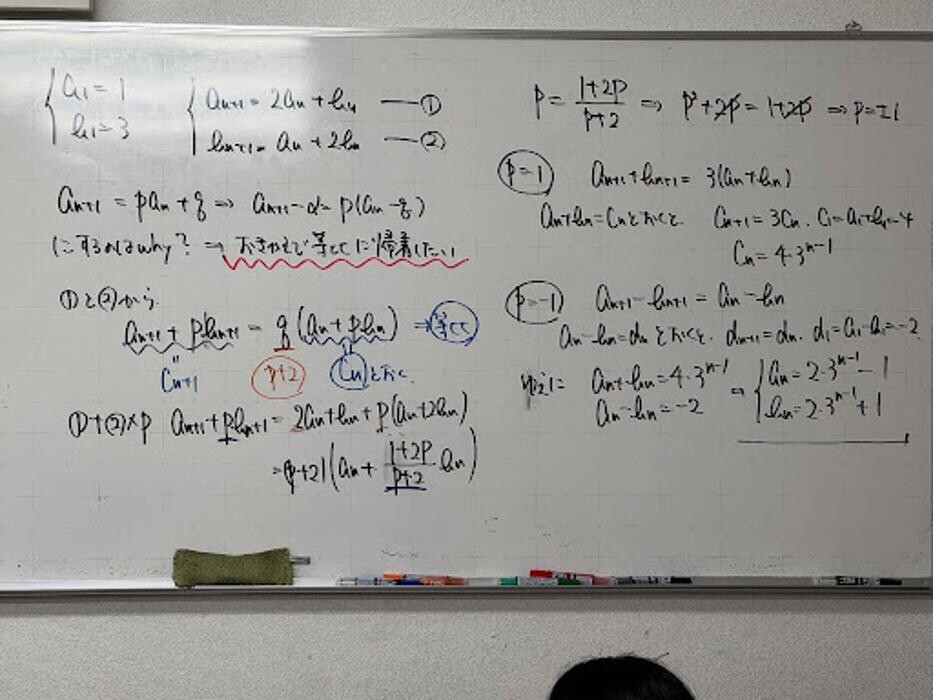 a₁ = 1
b₁ = 3
aₙ₊₁ = 2aₙ + bₙ ― ①
bₙ₊₁ = aₙ + 2bₙ ― ②
aₙ₊₁ = paₙ + q ⇒ aₙ₊₁ - α = p(aₙ - q)
にするのはwhy? → おきかえで等比に帰着したい
①と②から
aₙ₊₁ + pbₙ₊₁ = q(aₙ + pbₙ) ⇒ 等比
Cₙ₊₁ p+2 Cₙとおく
①+②×p aₙ₊₁ + pbₙ₊₁ = 2aₙ + bₙ + p(aₙ + 2bₙ)
= (p+2)(aₙ + (1+2p)/(p+2) bₙ)
p = (1+2p)/(p+2) ⇒ p² + 2p = 1 + 2p ⇒ p = ±1
p=1 aₙ₊₁ + bₙ₊₁ = 3(aₙ + bₙ)
aₙ + bₙ = Cₙとおくと Cₙ₊₁ = 3Cₙ. C₁ = a₁ + b₁ = 4
Cₙ = 4・3ⁿ⁻¹
p=-1 aₙ₊₁ - bₙ₊₁ = aₙ - bₙ
aₙ - bₙ = dₙとおくと. dₙ₊₁ = dₙ. d₁ = a₁ - b₁ = -2
aₙ + bₙ = 4・3ⁿ⁻¹ ⇒ aₙ = 2・3ⁿ⁻¹ - 1
aₙ - bₙ = -2 bₙ = 2・3ⁿ⁻¹ + 1